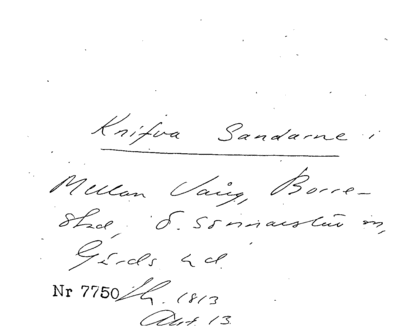 Knifva Sandarne i
Mellan Vång, Borre-
stad, Ö. Sönnarslöv sn,
Gärds hd.
Nr 7750 Sk. 1813
Akt 13